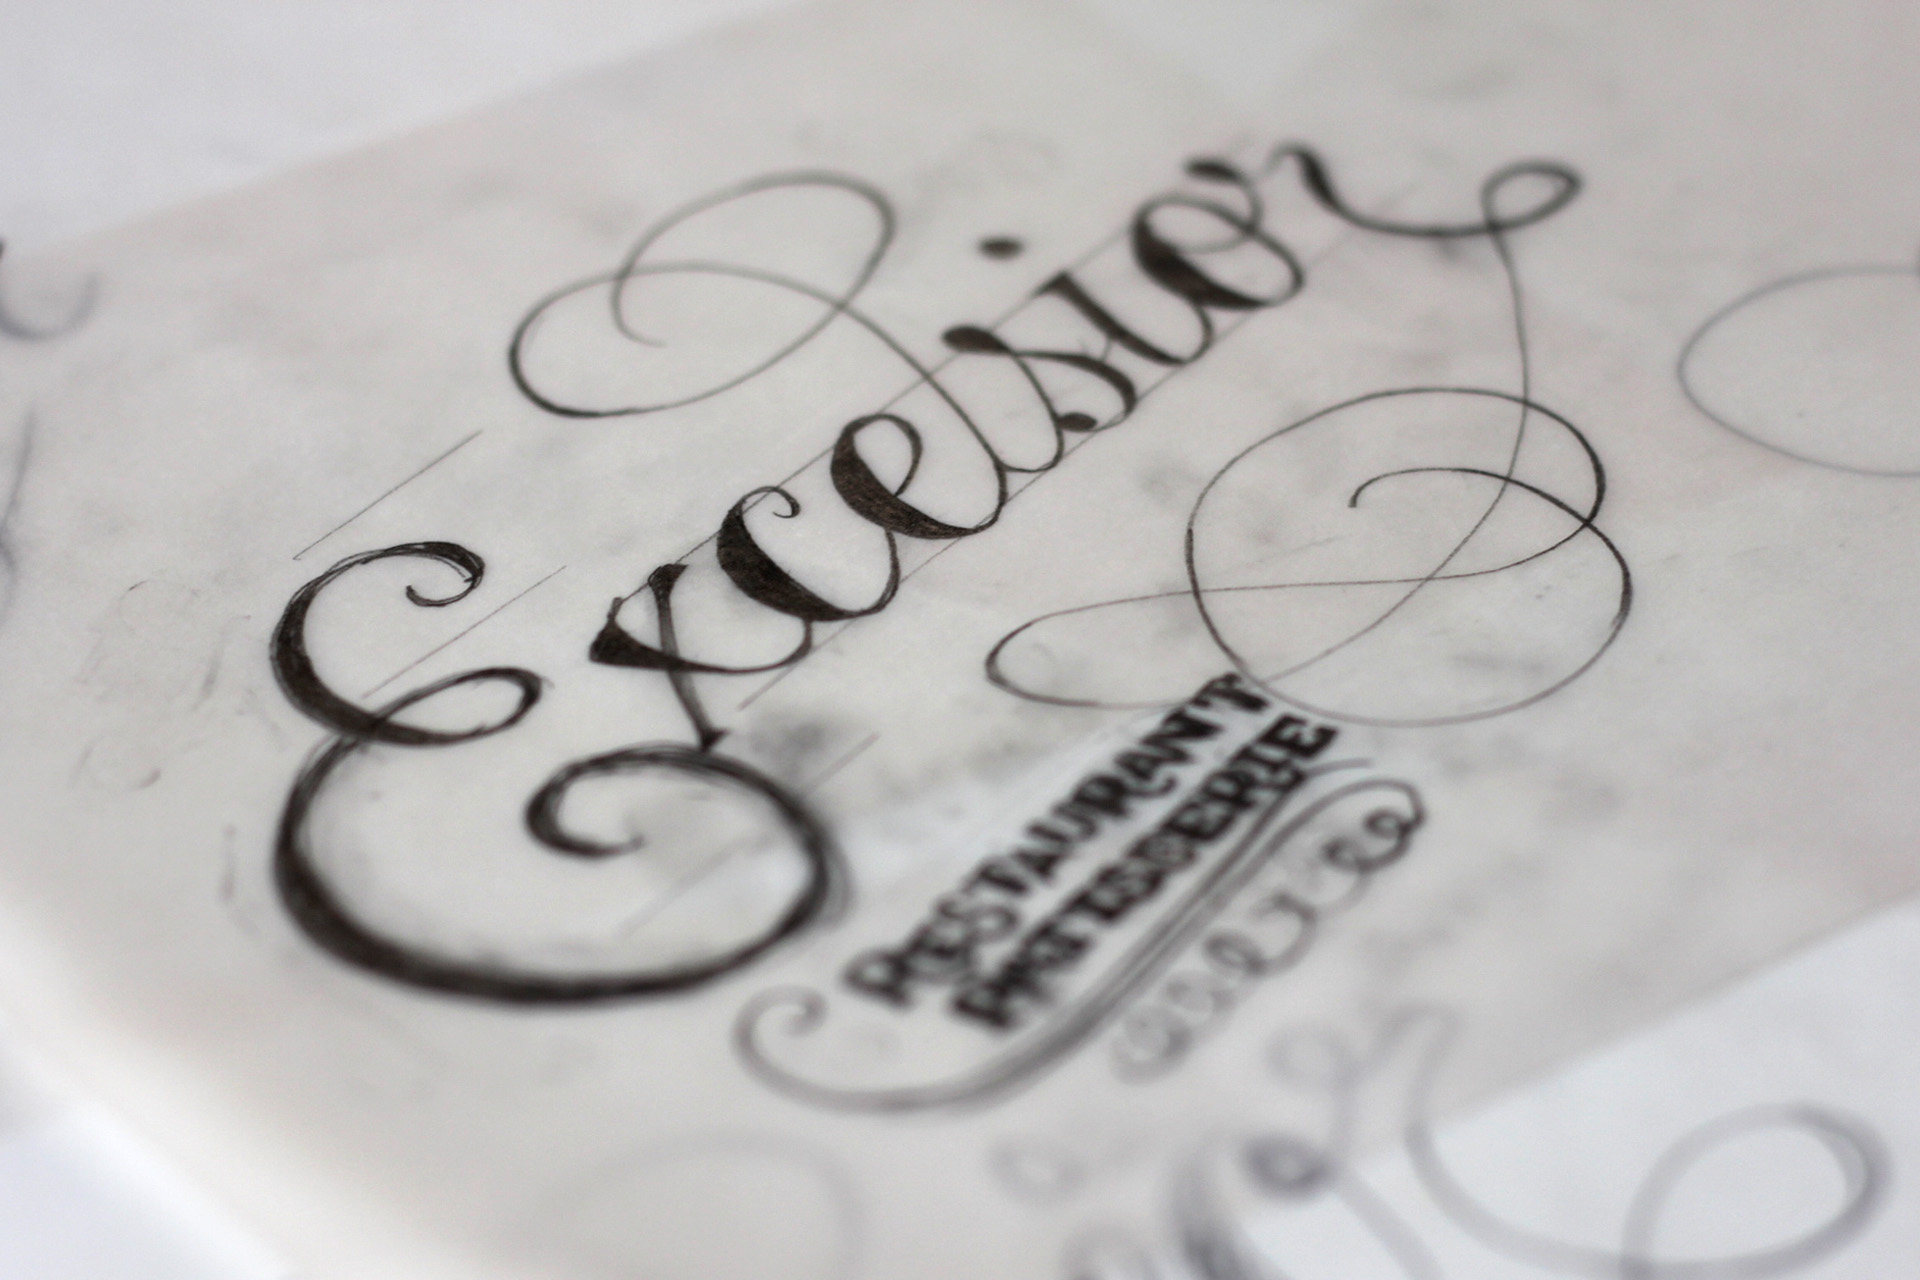 Excelsior
RESTAURANT
PATISSERIE